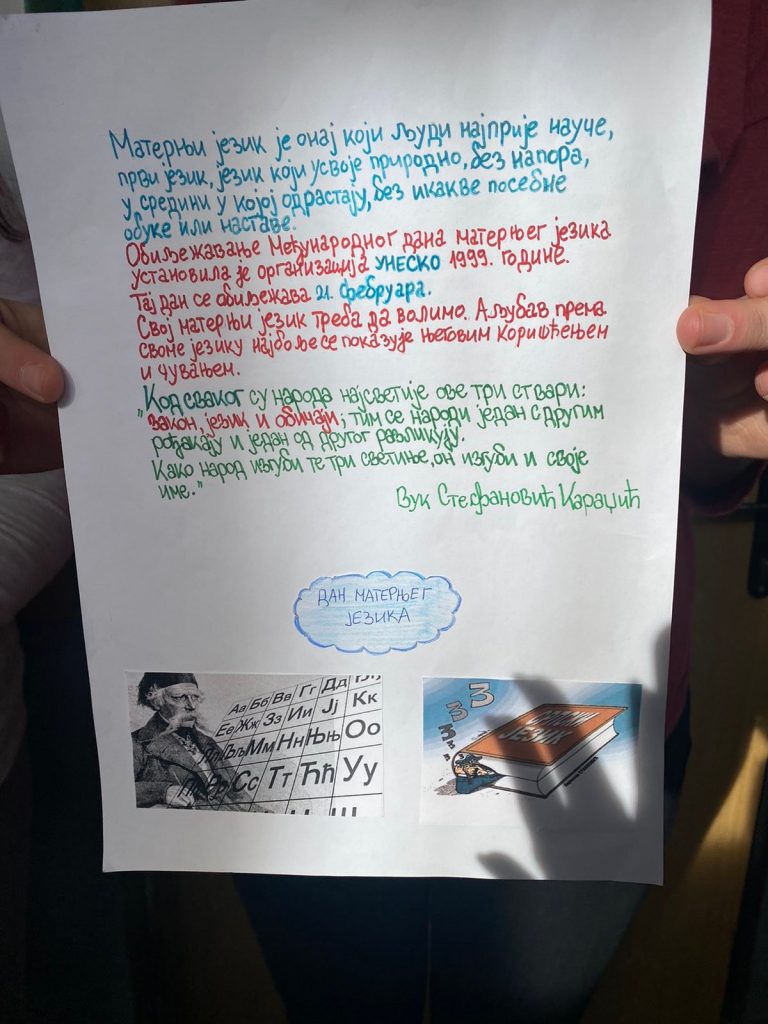 Матерњи језик је онај који људи најприје науче,
први језик, језик који усвоје природно, без напора,
у средини у којој одрастају, без икакве посебне
обуке или наставе.
Обиљежавање Међународног дана матерњег језика
установила је организација УНЕСКО 1999. године.
Тај дан се обиљежава 21. фебруара.
Свој матерњи језик треба да волимо. А љубав према
своме језику најбоље се показује његовим кориштењем
и чувањем.
"Код сваког су народа најсветије ове три ствари:
закон, језик и обичаји; тим се народи један с другим
рођакају и један од другог разликују.
Како народ изгуби те три светиње, он изгуби и своје
име."
Вук Стефановић Караџић
ДАН МАТЕРЊЕГ
ЈЕЗИКА
Аа Бб Вв Гг Дд
Ее Жж Зз Ии Јј Кк
Љљ Мм Нн Њњ Оо
Сс Тт Ћћ Уу
З З
ЈЕЗИК